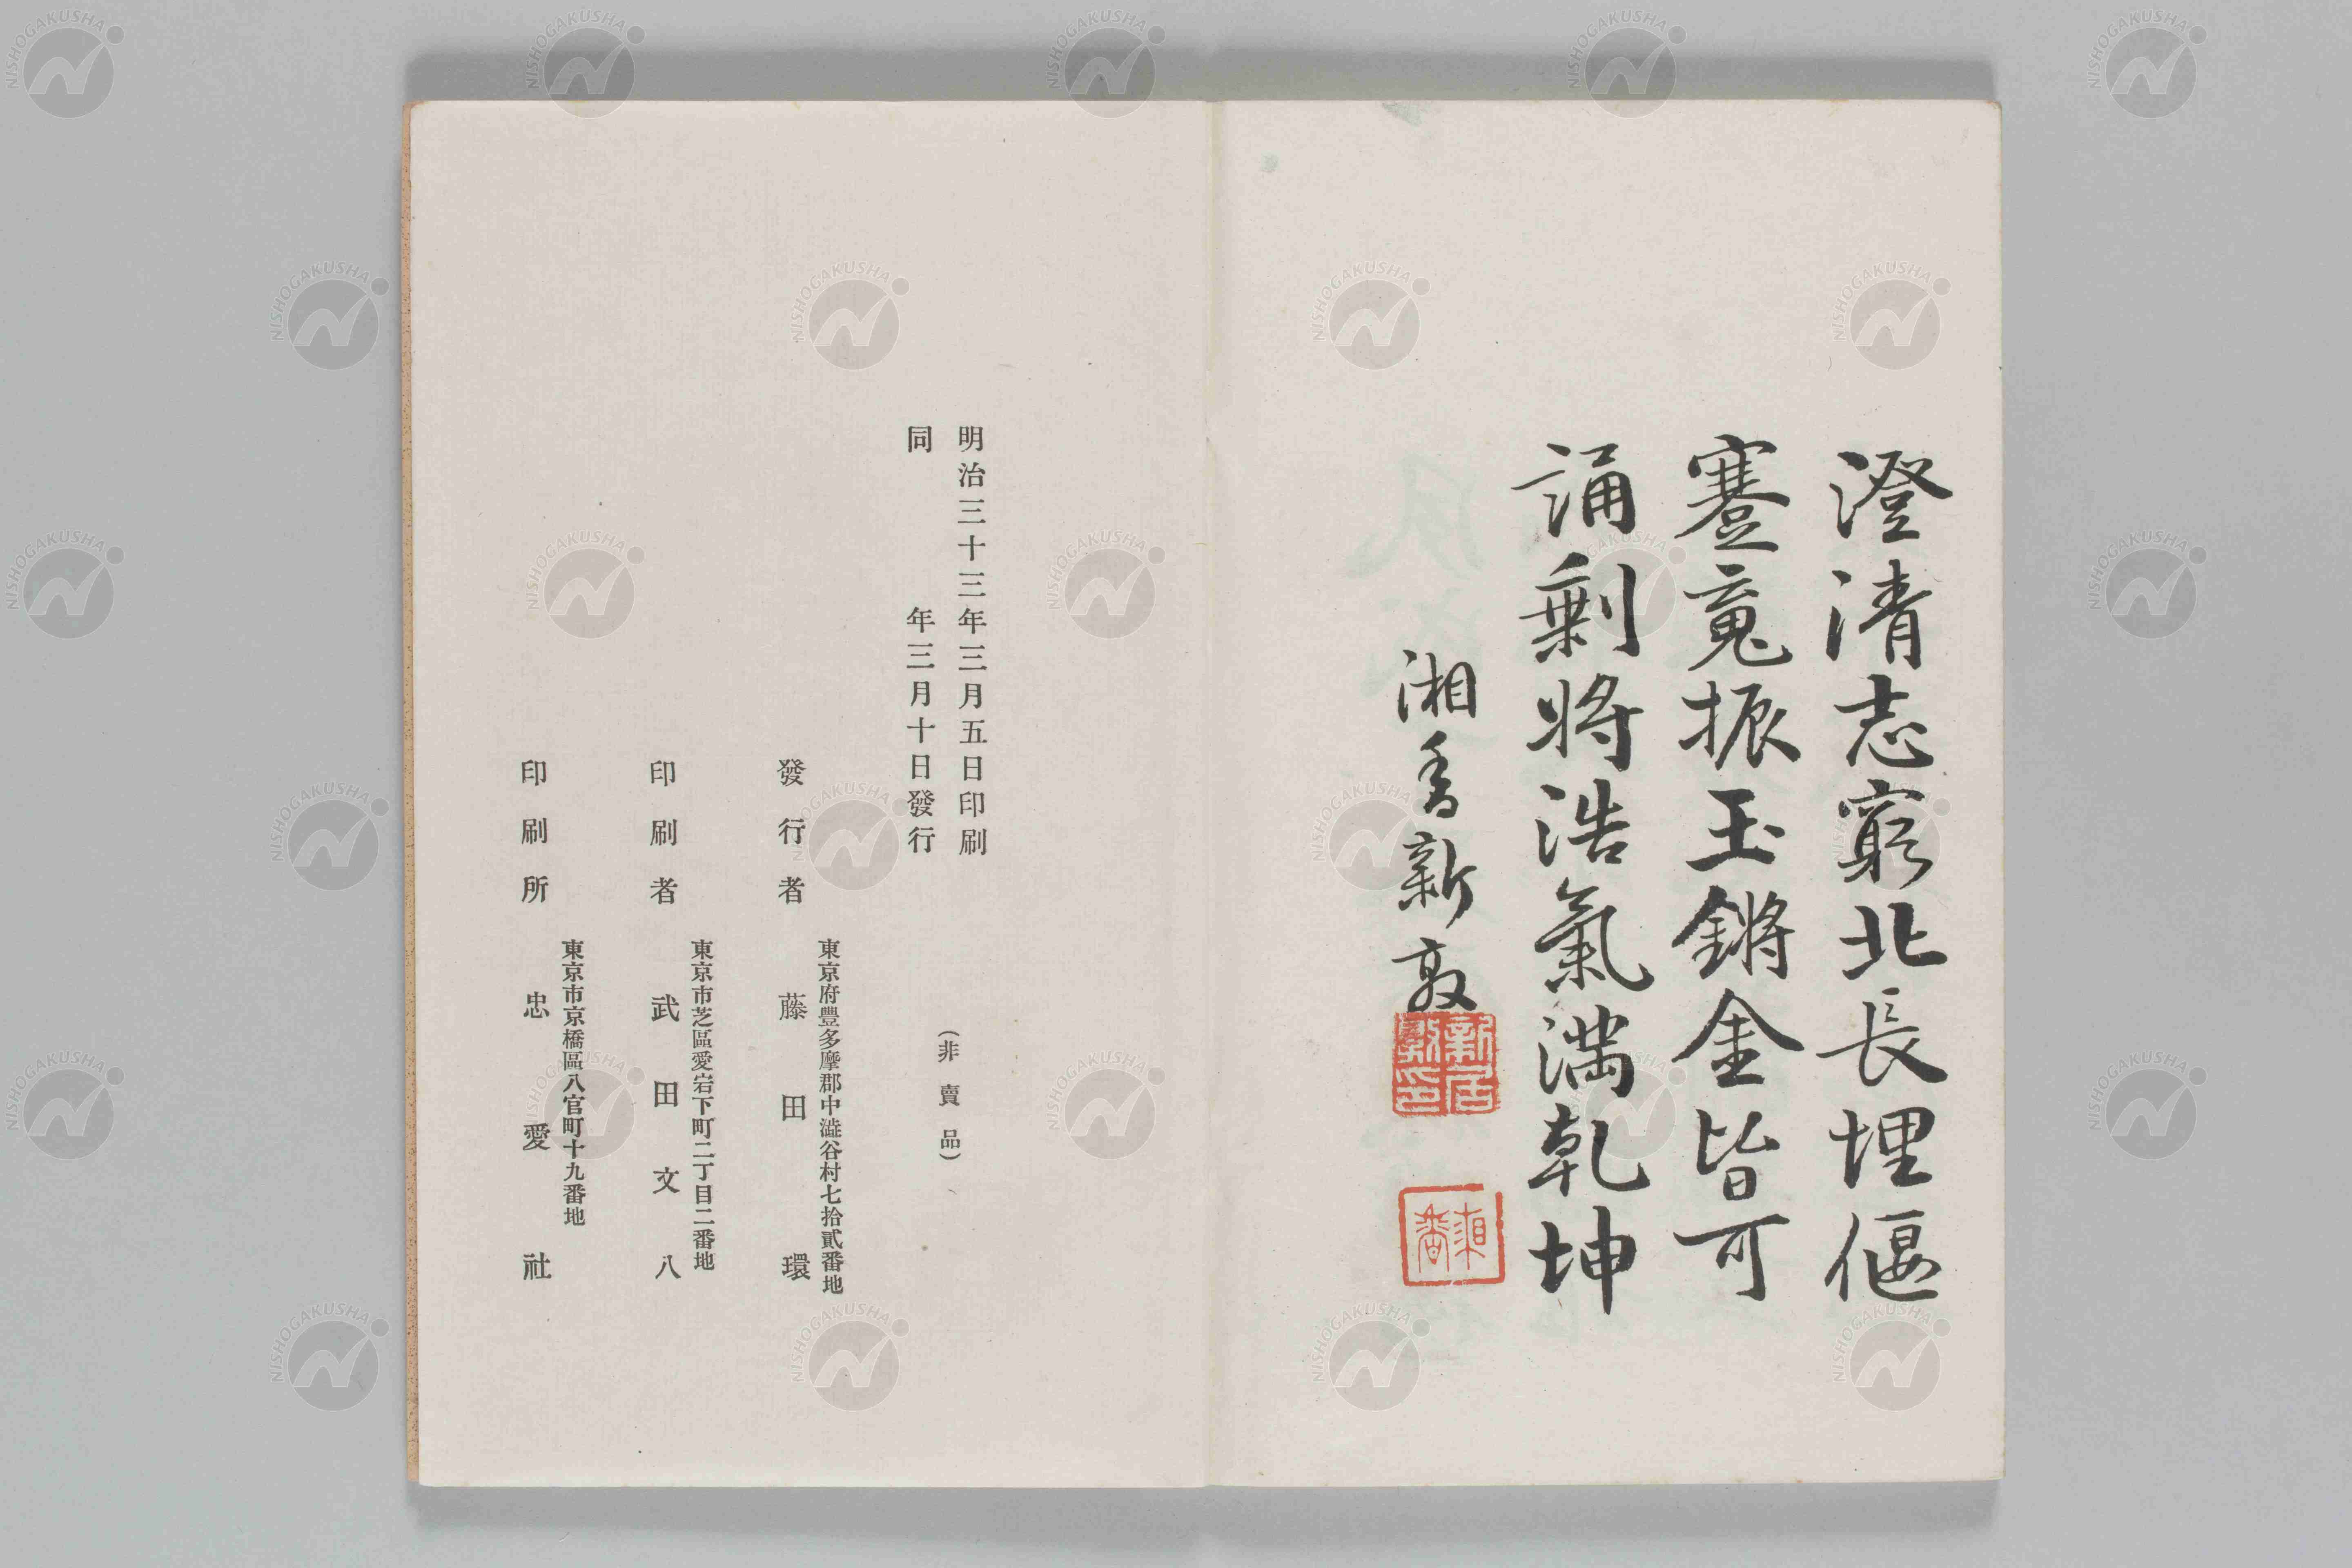 澄清志窮北長埋偃
蹇竟振玉鏘金皆可
誦剩將浩氣滿乾坤
湘香新敦
明治三十三年三月五日印刷
同年三月十日發行
(非賣品)
東京府豐多摩郡中澁谷村七拾貳番地
發行者 藤田環
東京市芝區愛宕下町二丁目二番地
印刷者 武田文八
東京市京橋區八官町十九番地
印刷所 忠愛社
NISHOGAKUSHA